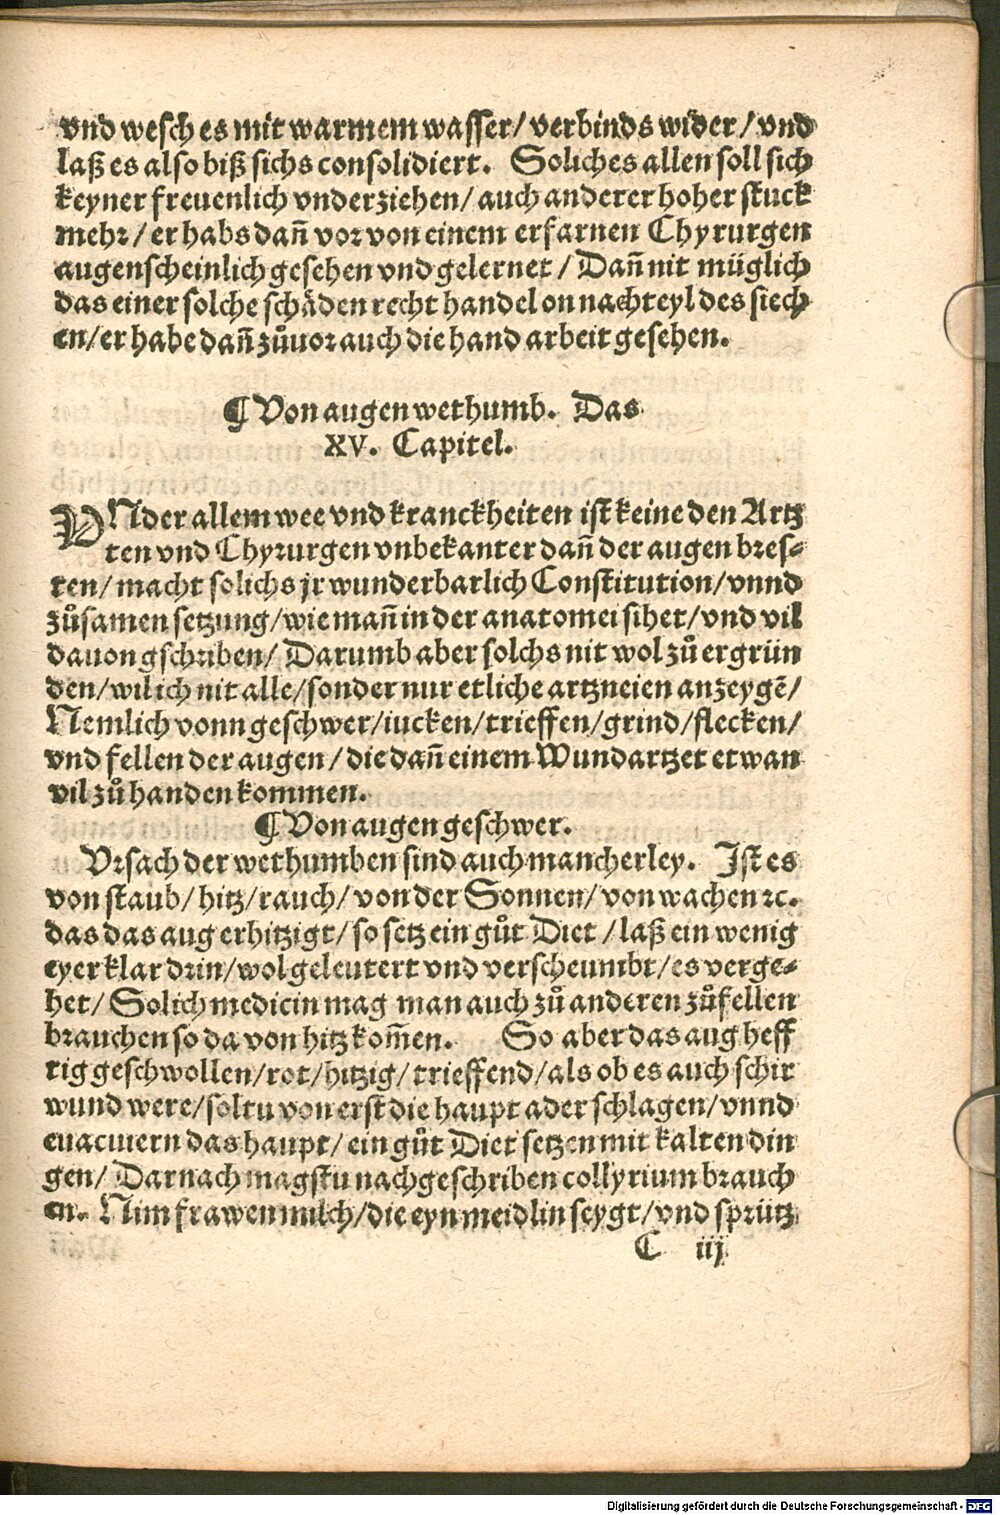 vnd wesch es mit warmem wasser/ verbinds wider/ vnd
laß es also biß sichs consolidiert. Soliches allen soll sich
keyner freuenlich vnderziehen/ auch anderer hoher stuck
mehr/ er habs dañ vor von einem erfarnen Chyrurgen
augenscheinlich gesehen vnd gelernet/ Dañ nit müglich
das einer solche schäden recht handel on nachteyl des siech
en/ er habe dañ zůuor auch die hand arbeit gesehen.
¶ Von augen wethumb. Das
XV. Capitel.
VNder allem wee vnd kranckheiten ist keine den Artz
ten vnd Chyrurgen vnbekanter dañ der augen bres-
ten/ macht solichs jr wunderbarlich Constitution/ vnnd
zůsamen setzung/ wie mañ in der anatomei sihet/ vnd vil
dauon gschriben/ Darumb aber solchs nit wol zů ergrün
den/ wil ich nit alle/ sonder nur etliche artzneien anzeygẽ/
Nemlich vonn geschwer/ iucken/ trieffen/ grind/ flecken/
vnd fellen der augen/ die dañ einem Wundartzet etwan
vil zů handen kommen.
¶ Von augen geschwer.
Vrsach der wethumben sind auch mancherley. Ist es
von staub/ hitz/ rauch/ von der Sonnen/ von wachen ꝛc.
das das aug erhitzigt/ so setz ein gůt Diet/ laß ein wenig
eyerklar drin/ wol geleutert vnd verscheumbt/ es verge-
het/ Solich medicin mag man auch zů anderen zůfellen
brauchen so da von hitz kom̃en. So aber das aug heff
tig geschwollen/ rot/ hitzig/ trieffend/ als ob es auch schir
wund were/ soltu von erst die haupt ader schlagen/ vnnd
euacuiern das haupt/ ein gůt Diet setzen mit kalten din
gen/ Darnach magstu nachgeschriben collyrium brauch
en. Nim frawen milch/ die eyn meidlin seygt/ vnd sprütz
C iij
Digitalisierung gefördert durch die Deutsche Forschungsgemeinschaft - DFG